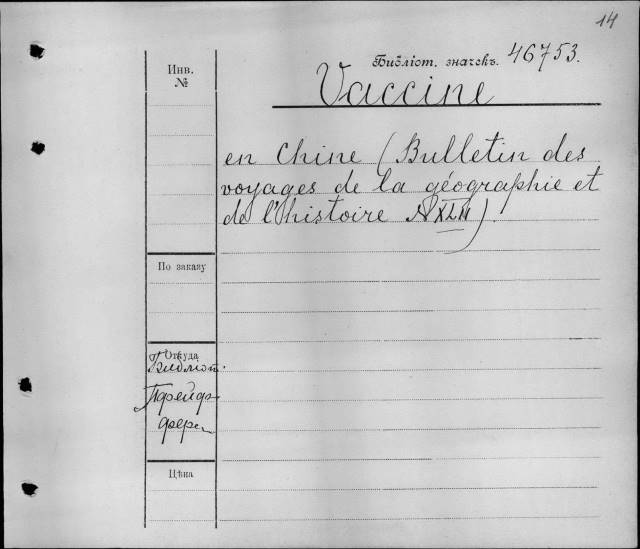 14
Инв.
№
Библіот. значекъ. 46753.
Vaccine
en Chine (Bulletin des
voyages de la géographie et
de l'histoire XLII).
По заказу
Откуда
Библіот.
Цѣна